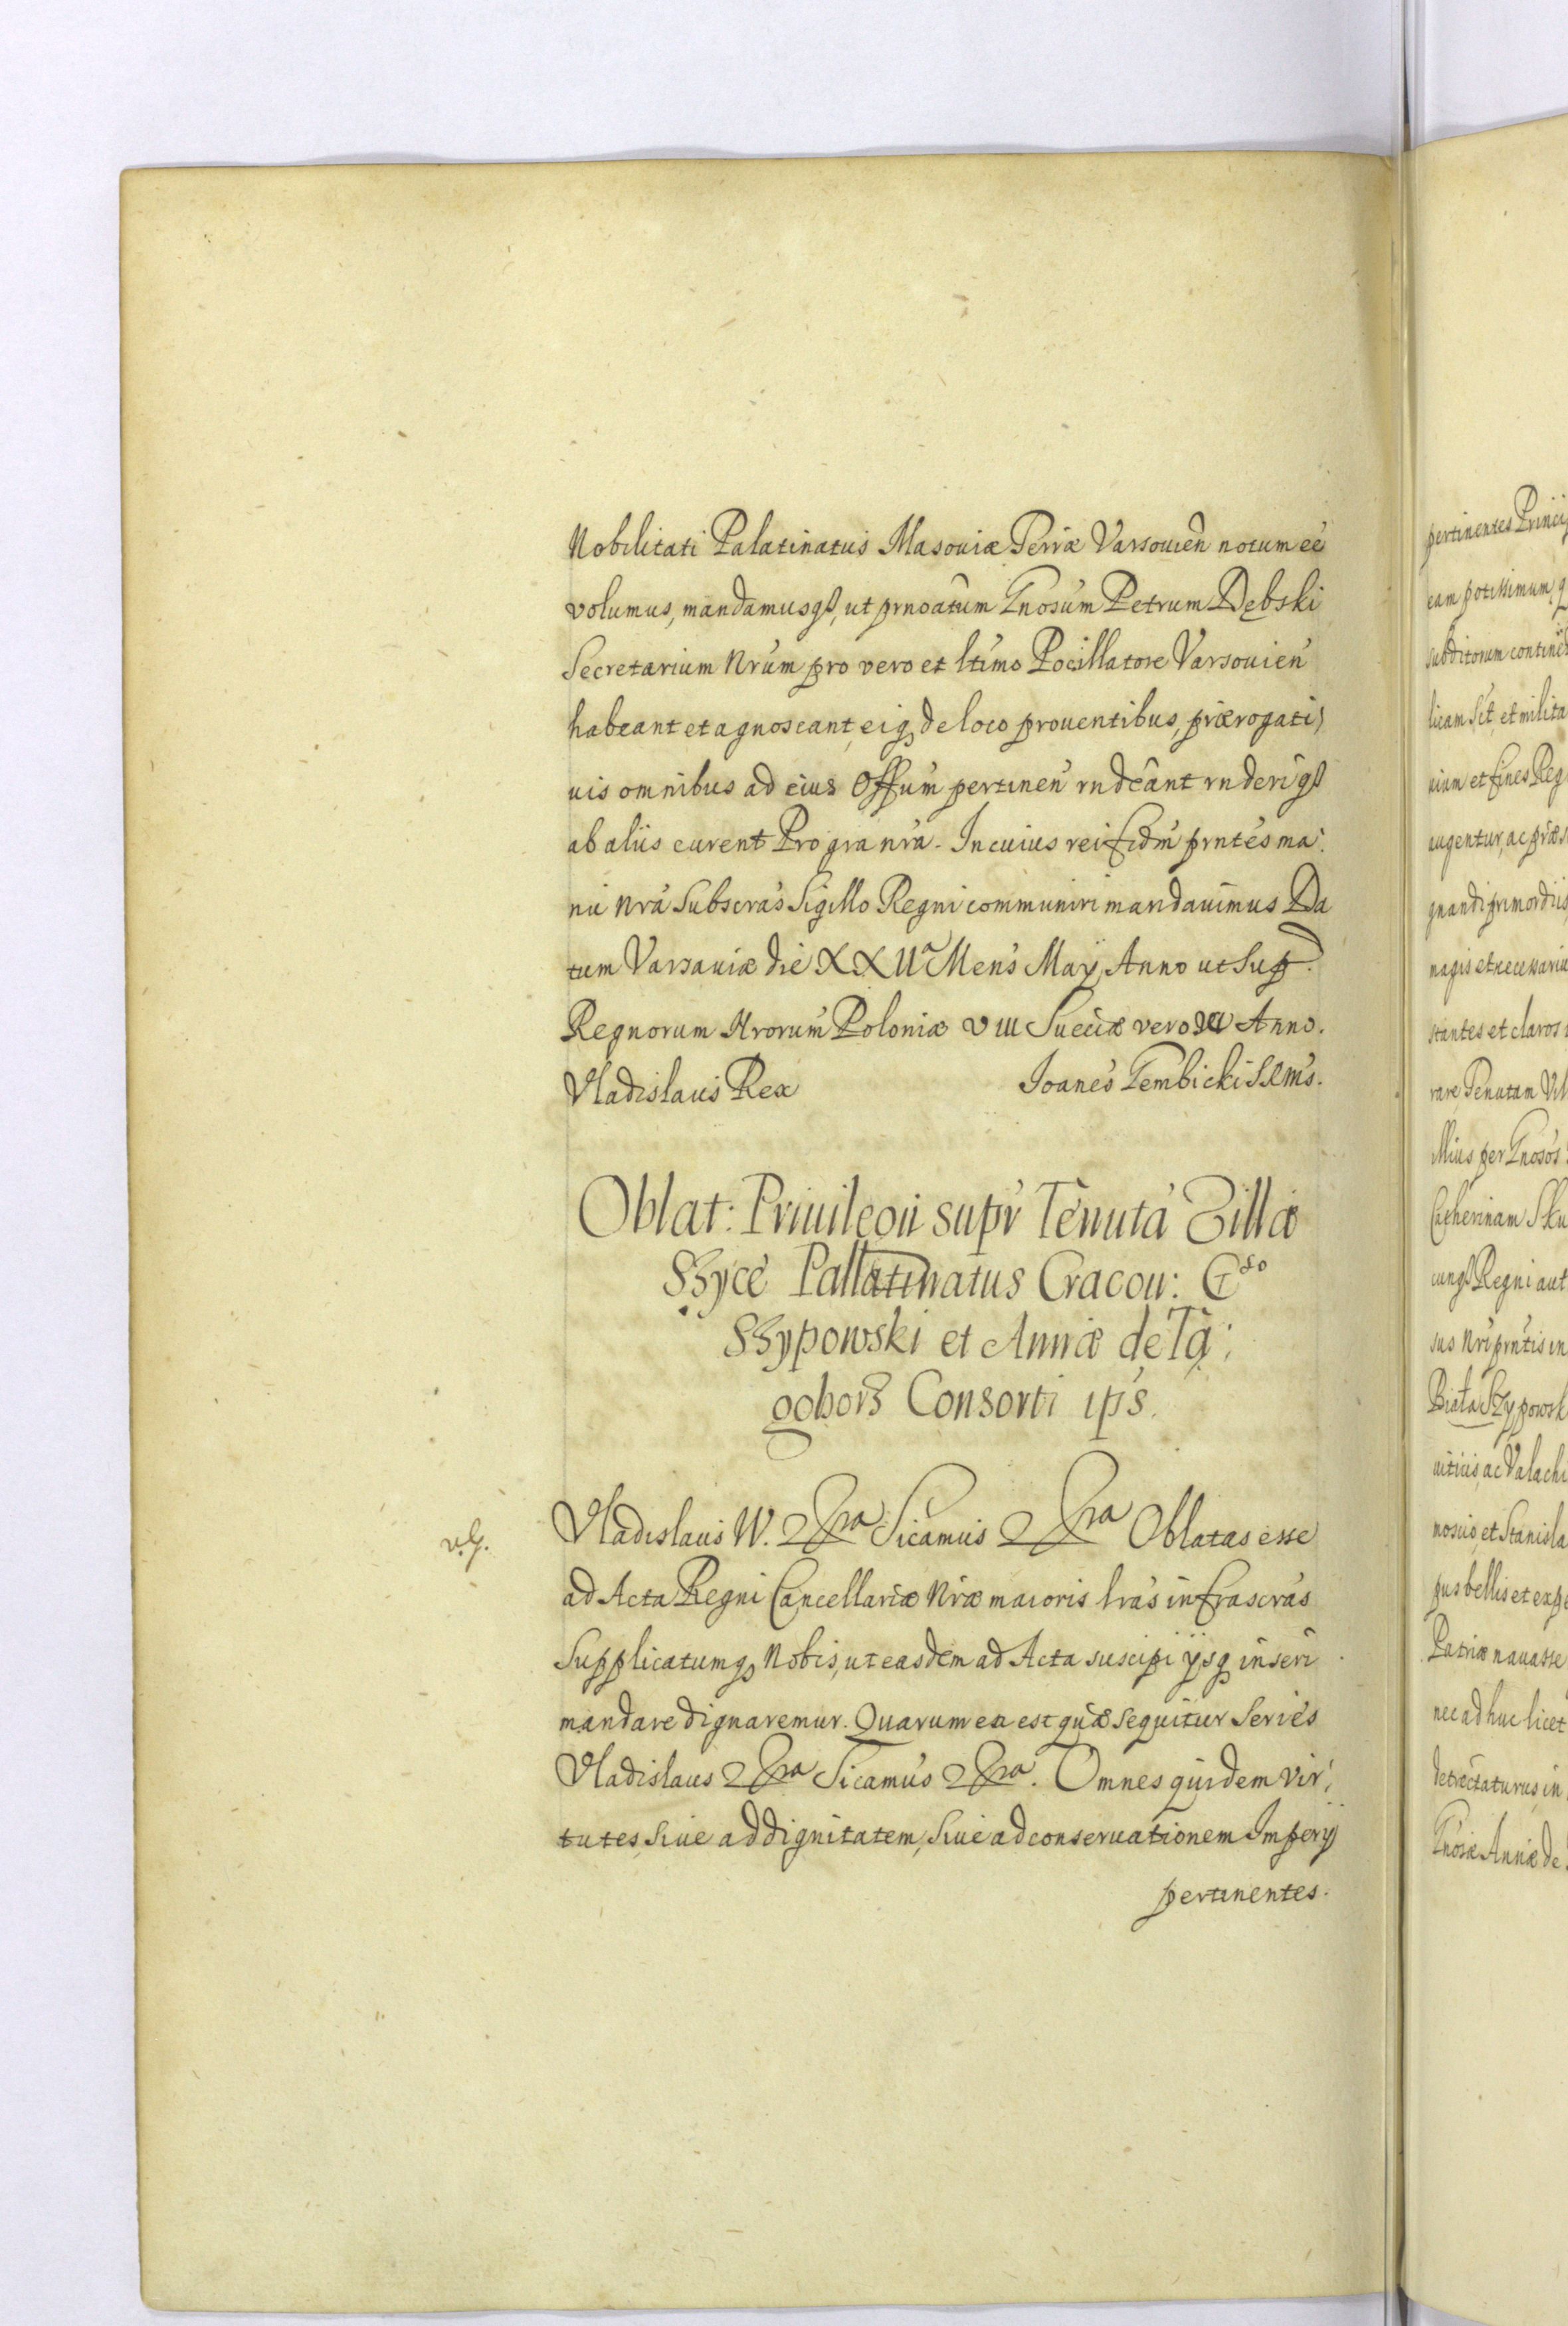 Nobilitati Palatinatus Masouiæ Terræ Varsouien notum eé
volumus, mandamusqȝ, ut prnoatum Gnosum Petrum Dębski
Secretarium Nrum pro vero et ltimo Pocillatore Varsouien
habeant et agnoscant, eiqȝ de loco prouentibus, prærogati,
uis omnibus ad eius Offum pertinen rndeant rnderiqȝ
ab aliis curent Pro gra nra. In cuius rei fidm prntes ma:
nu nra Subscras Sigillo Regni communiri mandauimus Da
tum Varsauiæ die XXIIa Mens Maÿ Anno ut Sup.
Regnorum Nrorum Poloniæ VIII Sueciæ vero IX Anno.
Vladislaus Rex Joanes Gembicki SRMs.
Oblat: Priuilegii supr Tenuta Villæ
Szyce Pallatinatus Cracou: Gso
Szypowski et Annæ de Ta:
goborz Consorti ips.
v.g.
Vladislaus IV. Dra Sicamus Dra Oblatas esse
ad Acta Regni Cancellariæ Nræ maioris lras infrascras
Supplicatumqȝ Nobis, ut easdem ad Acta suscipi ÿsqȝ inseri
mandare dignaremur. Quarum ea est quæ sequitur Series
Vladislaus Dra Sicamus Dra. Omnes quidem vir,
tutes, siue ad dignitatem, siue ad conseruationem Imperÿ
pertinentes.
pertinentes
eam potissimum
subditorum
licam sit, et milita
uium et fines Reg
augentur, ac
gnandi primordiis
magis et necessaria
stantes et claros
rare Tenutam
illius per Gnosos
Catherinam
cunqȝ Regni aut
sus Nri prntis in
Biała Szypowsk
uitiis, ac Valachi
et Stanisla
pus bellis et expe
Patriæ nauasse
nec adhuc licet
detrectaturus, in
Gnosæ Annæ de